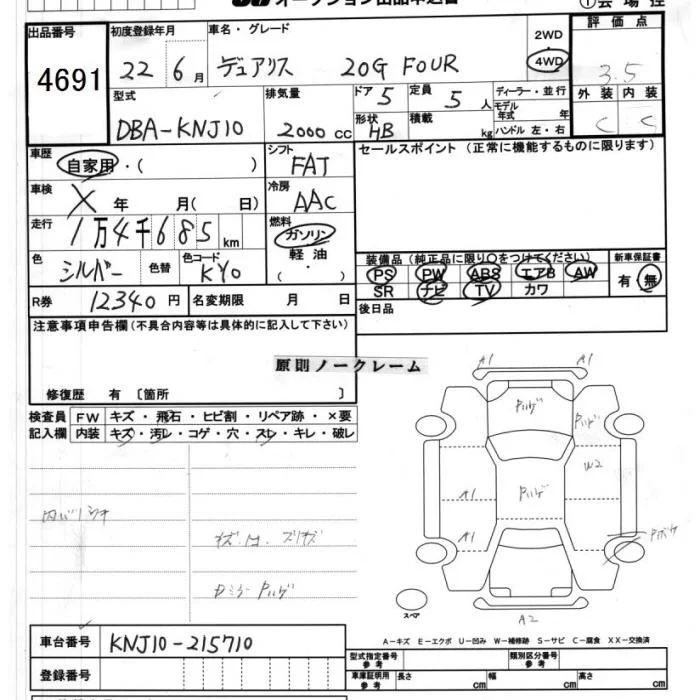 オークション出品申込書
①会場控
出品番号 初度登録年月 車名・グレード 2WD 評価点
4691 22 6月 デュアリス 20G FOUR 4WD 3.5
型式 排気量 ドア 5 定員 5人 ディーラー・並行 外装 内装
DBA-KNJ10 2000cc 形状 HB 積載 kg モデル年式 年 C C
ハンドル 左・右
車歴 シフト セールスポイント (正常に機能するものに限ります)
自家用・( ) FAT
車検 冷房
X 年 月( 日) AAC
走行 燃料
1万4千685km ガソリン
色 色替 色コード 軽油 装備品 (純正品に限り○をつけてください) 新車保証書
シルバー KY0 ( ・ ) PS PW ABS エアB AW 有 無
R券 12340円 名変期限 月 日 SR ナビ TV カワ
後日品
注意事項申告欄(不具合内容等は具体的に記入して下さい)
原則ノークレーム
修復歴 有 〔箇所 〕
検査員 FW キズ・飛石・ヒビ割・リペア跡・×要
記入欄 内装 キズ・汚レ・コゲ・穴・スレ・キレ・破レ
A1 A1
W2
A1
A1
スペア
A2
A-キズ E-エクボ U-凹み W-補修跡 S-サビ C-腐食 XX-交換済
車台番号 KNJ10-215710
型式指定番号 参考 類別区分番号 参考
登録番号 車庫証明用 参考 長さ cm 幅 cm 高さ cm